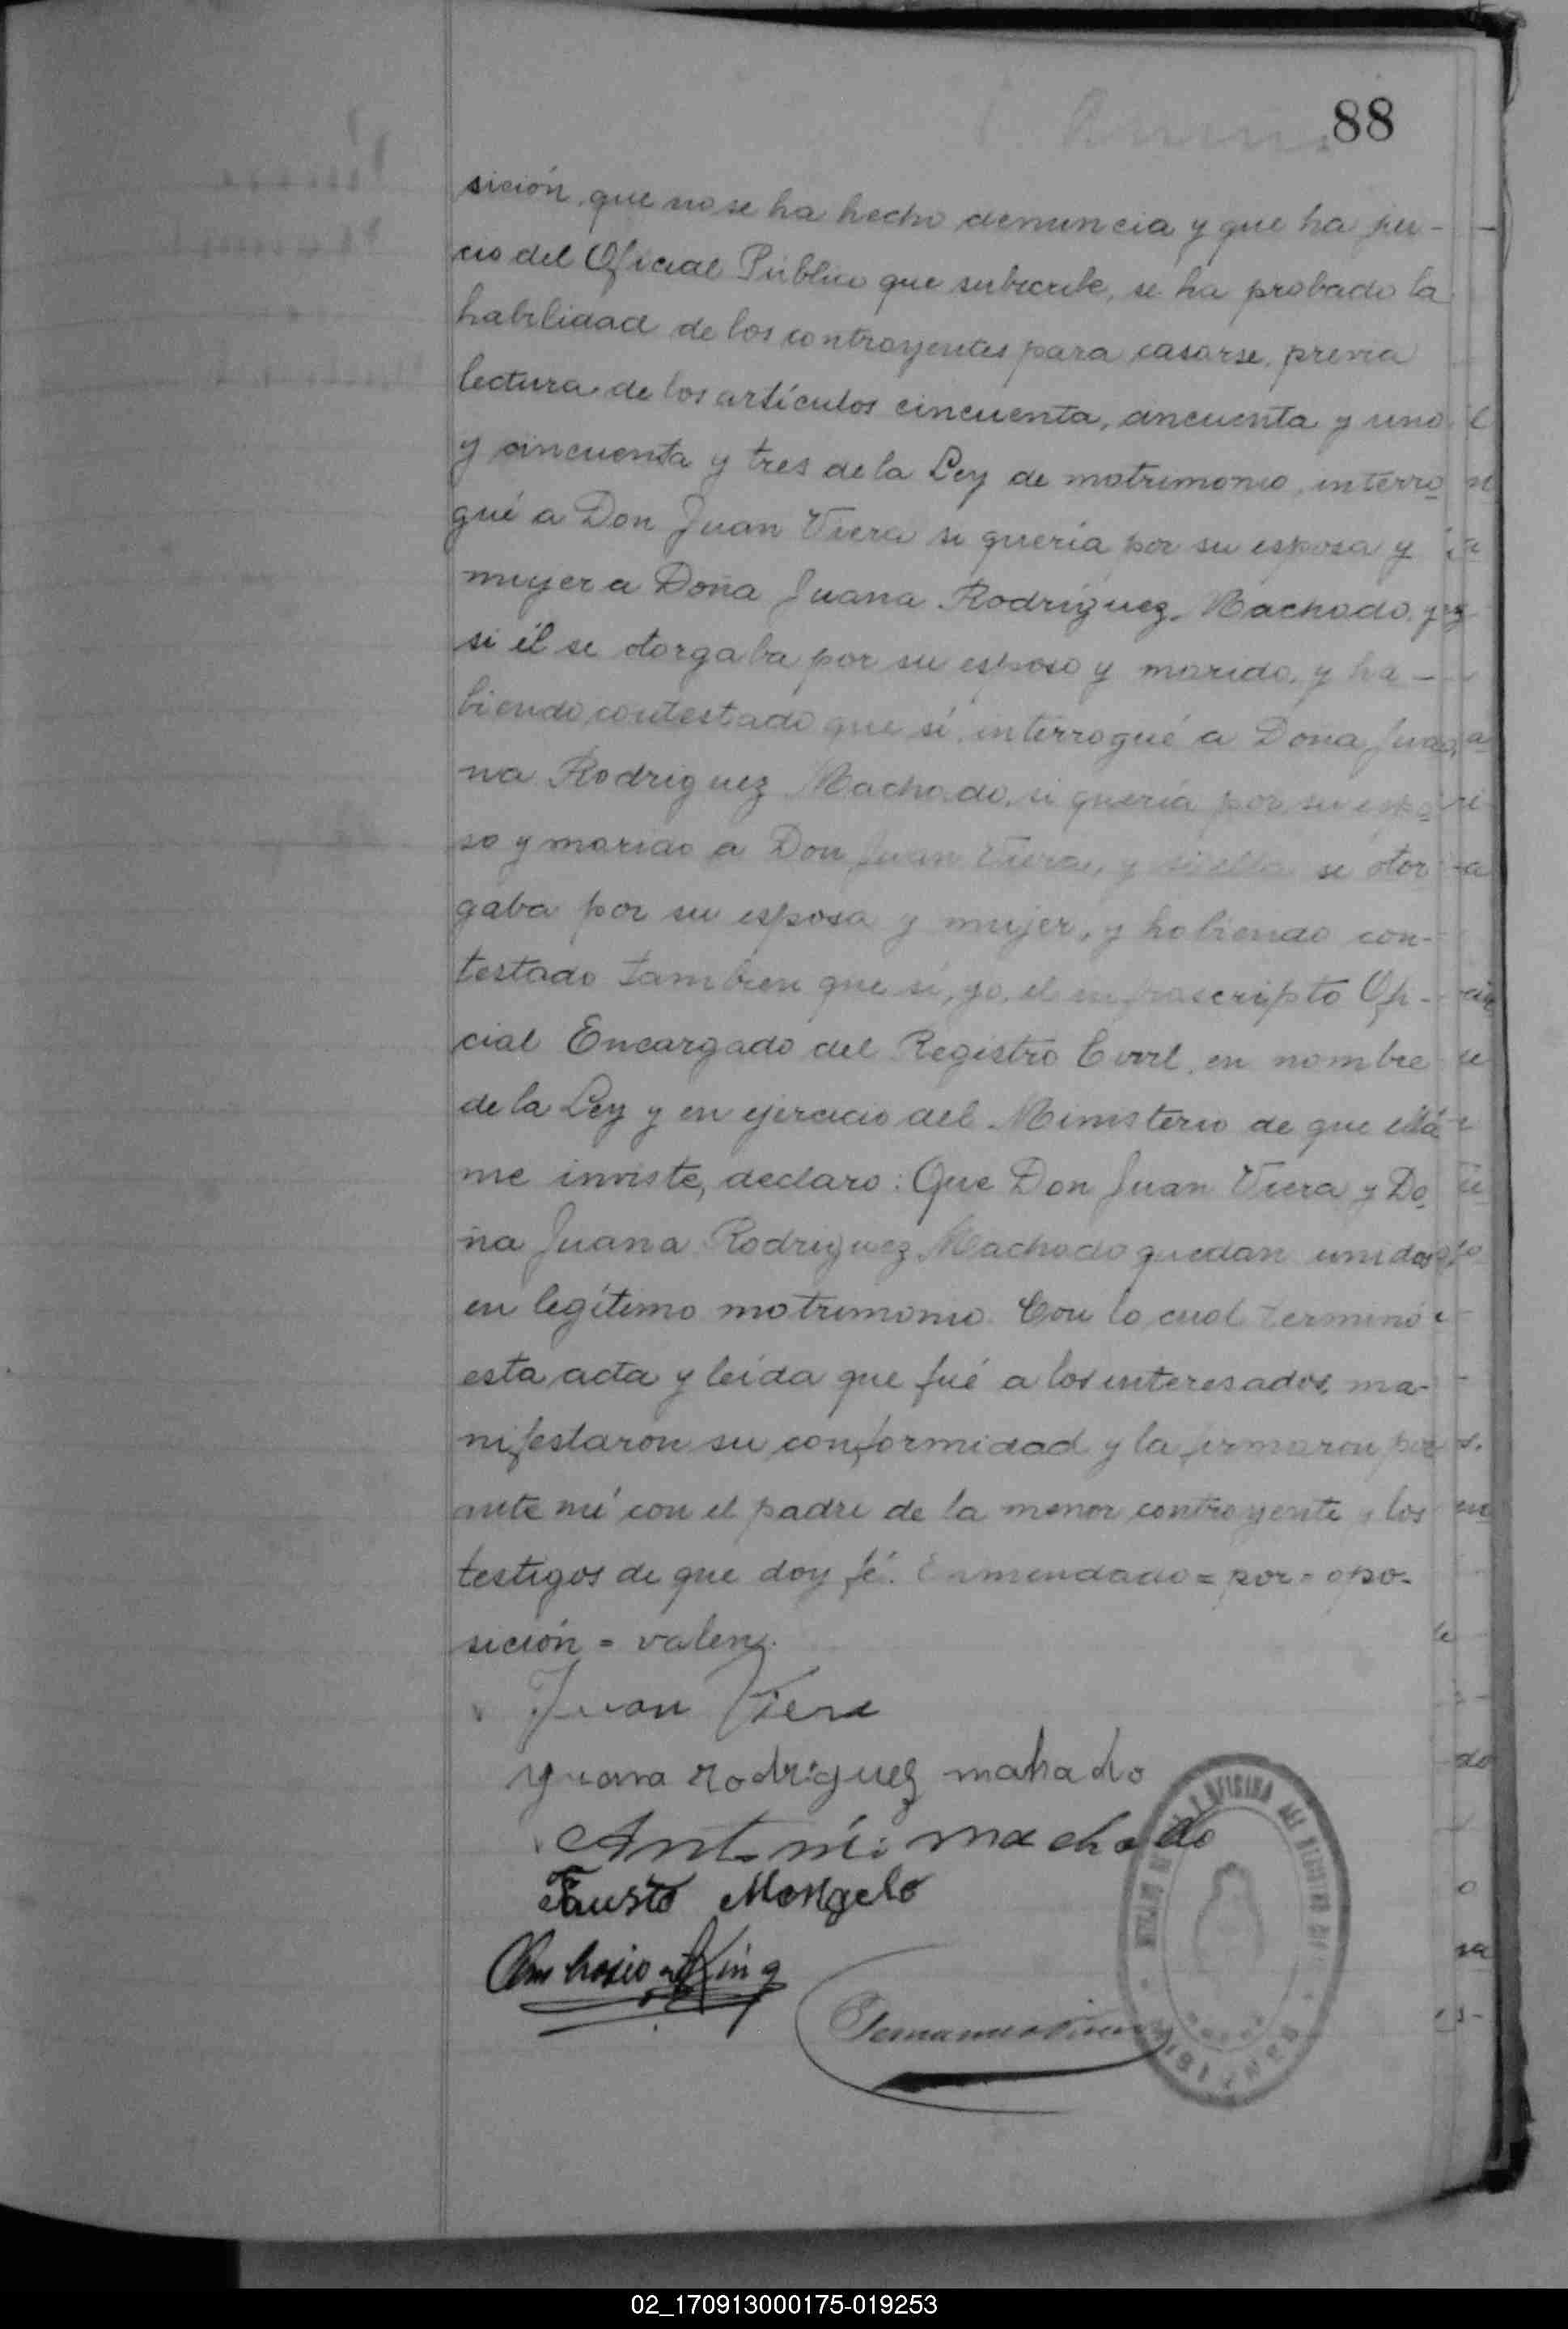 88
sición, que no se ha hecho denuncia y que ha jui-
cio del Oficial Público que subscribe, se ha probado la
habilidad de los contrayentes para casarse, previa
lectura de los artículos cincuenta, cincuenta y uno
y cincuenta y tres de la Ley de matrimonio, interro
gué a Don Juan Viera si quería por su esposa y
mujer a Doña Juana Rodríguez Machado, y
si él se otorgaba por su esposo y marido, y ha-
biendo contestado que sí, interrogué a Doña Jua
na Rodriguez Machado, si quería por su espo
so y marido a Don Juan Viera, y si ella se otor
gaba por su esposa y mujer, y habiendo con-
testado tambien que sí, yo, el infrascripto Ofi-
cial Encargado del Registro Civil, en nombre
de la Ley y en ejercicio del Ministerio de que ella
me inviste, declaro: Que Don Juan Viera y Do
ña Juana Rodriguez Machado quedan unidos
en legítimo matrimonio. Con lo cual terminó
esta acta y leída que fué a los interesados, ma-
nifestaron su conformidad y la firmaron por
ante mí con el padre de la menor contrayente y los
testigos de que doy fé. Enmendado = por = opo-
sición = valen.
Juan Viera
Juana rodriguez mahado
Antonio machado
Fausto Mongelo
Ambrosio King
OFICINA DEL REGISTRO
02_170913000175-019253